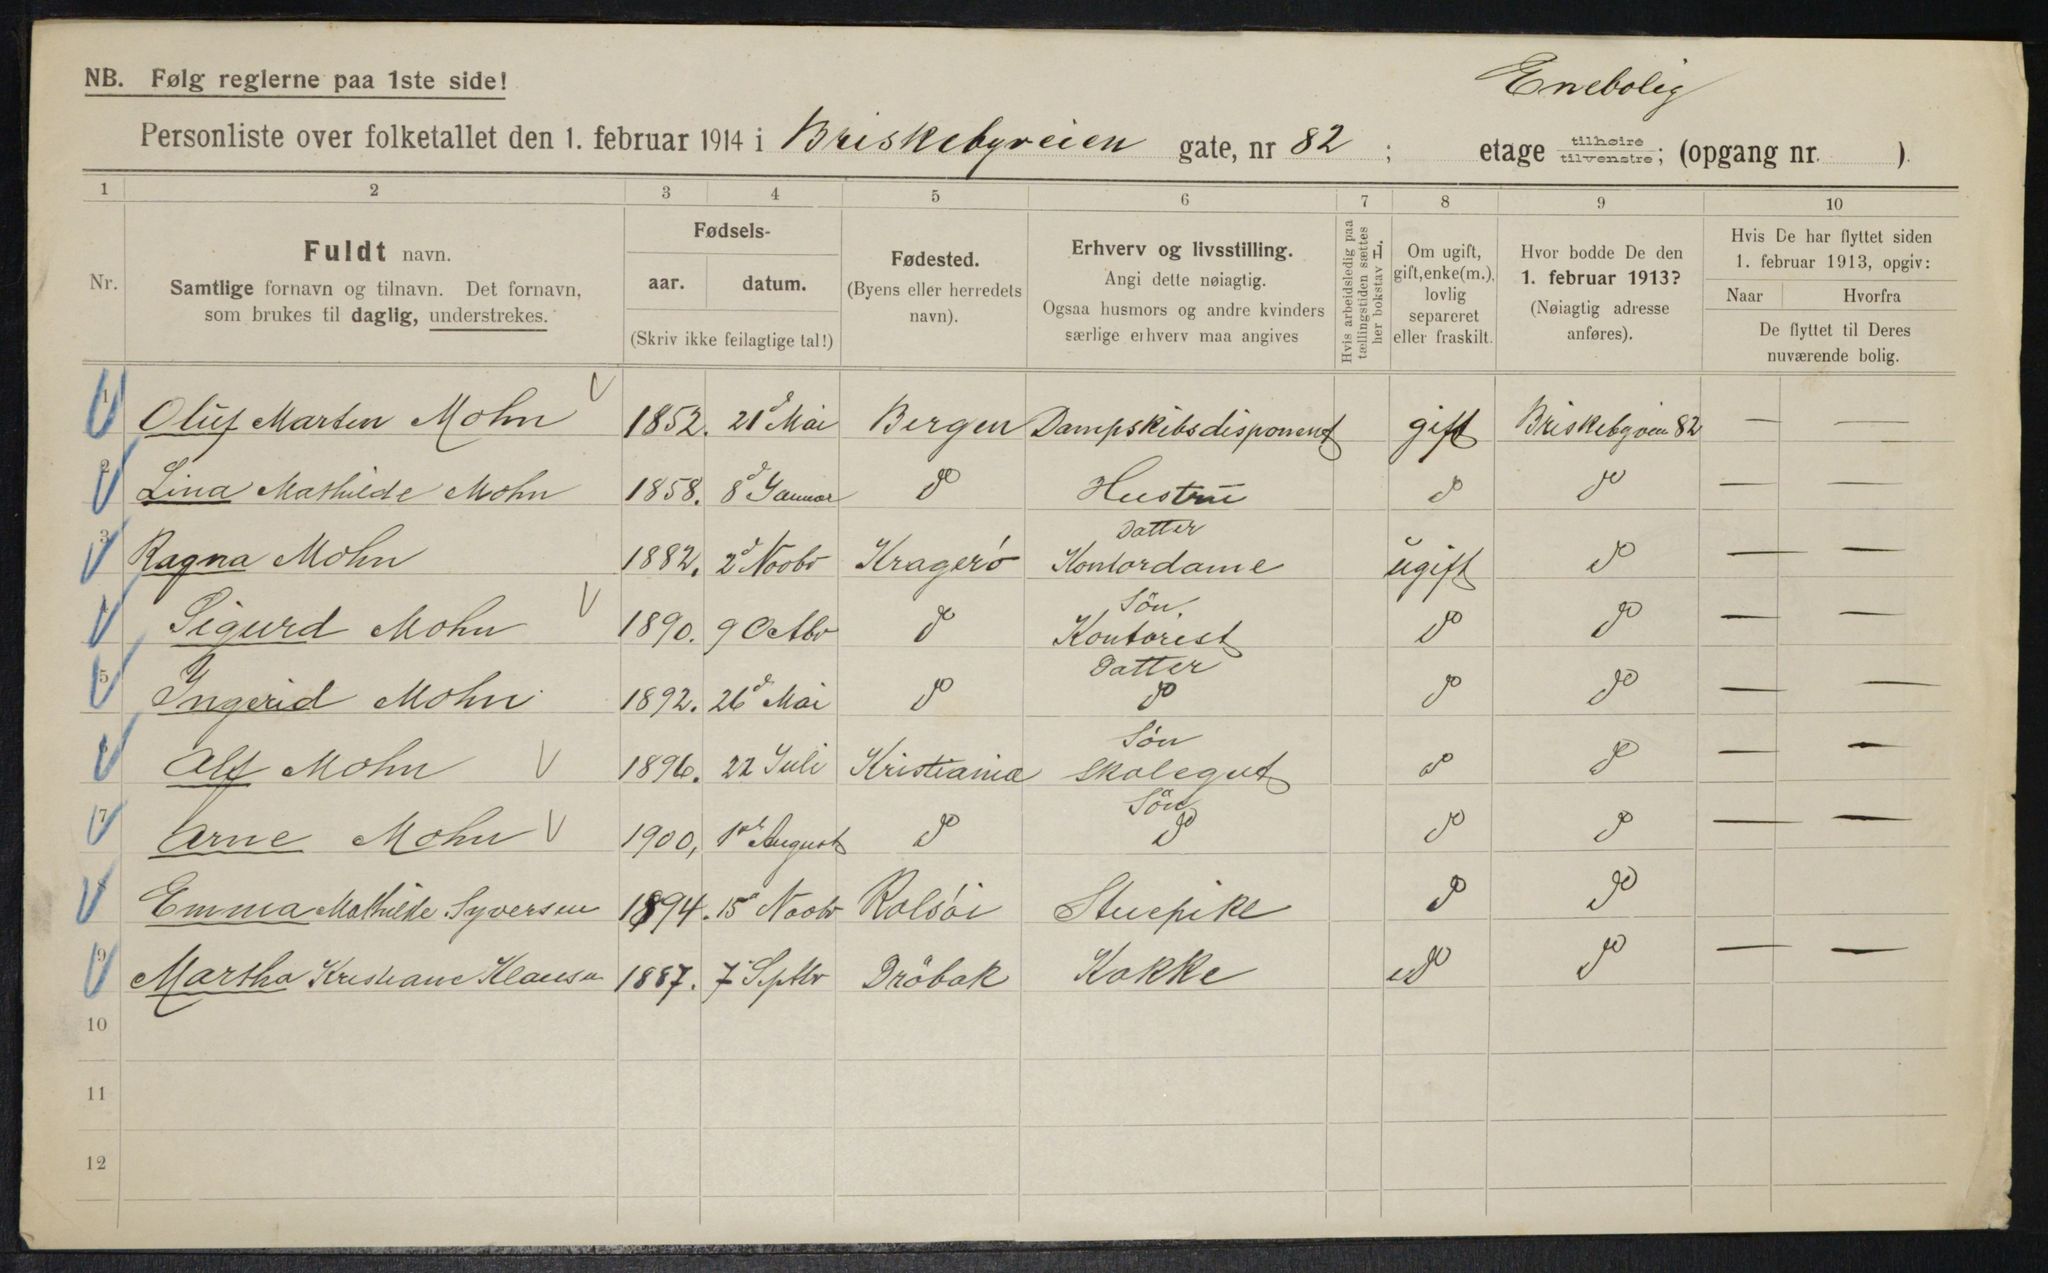 NB. Følg reglerne paa 1ste side!
Enebolig
Personliste over folketallet den 1. februar 1914 i Briskebyveien gate, nr 82 ; etage tilhøire tilvenstre; (opgang nr. ).
1 2 3 4 5 6 7 8 9 10
Nr.
Fuldt navn.
Samtlige fornavn og tilnavn. Det fornavn,
som brukes til daglig, understrekes.
Fødsels-
aar. datum.
(Skriv ikke feilagtige tal!)
Fødested.
(Byens eller herredets
navn).
Erhverv og livsstilling.
Angi dette nøiagtig.
Ogsaa husmors og andre kvinders
særlige erhverv maa angives
Hvis arbeidsledig paa
tællingstiden sættes
her bokstav L.
Om ugift,
gift, enke(m.),
lovlig
separeret
eller fraskilt.
Hvor bodde De den
1. februar 1913?
(Nøiagtig adresse
anføres).
Hvis De har flyttet siden
1. februar 1913, opgiv:
Naar Hvorfra
De flyttet til Deres
nuværende bolig.
1 Oluf Marten Mohn 1852. 21d Mai Bergen Dampskibsdisponent gift Briskebyvein 82 — —
2 Lina Mathilde Mohn 1858. 8d Januar do Hustru do do — —
Datter
3 Ragna Mohn 1882. 2d Novbr Kragerö Kontordame ugift do — —
Sön
4 Sigurd Mohn 1890. 9 Octbr do Kontorist do do — —
Datter
5 Ingerid Mohn 1892. 26d Mai do do do do — —
Sön
6 Alf Mohn 1896. 22 Juli Kristiania Skolegut do do — —
Sön
7 Arne Mohn 1900, 1ste August do do do do — —
8 Emma Mathilde Syversen 1894. 15d Novbr Rolsöi Stuepike do do
9 Martha Kristiane Klausen 1887. 7 Septbr Dröbak Kokke do do — —
10
11
12